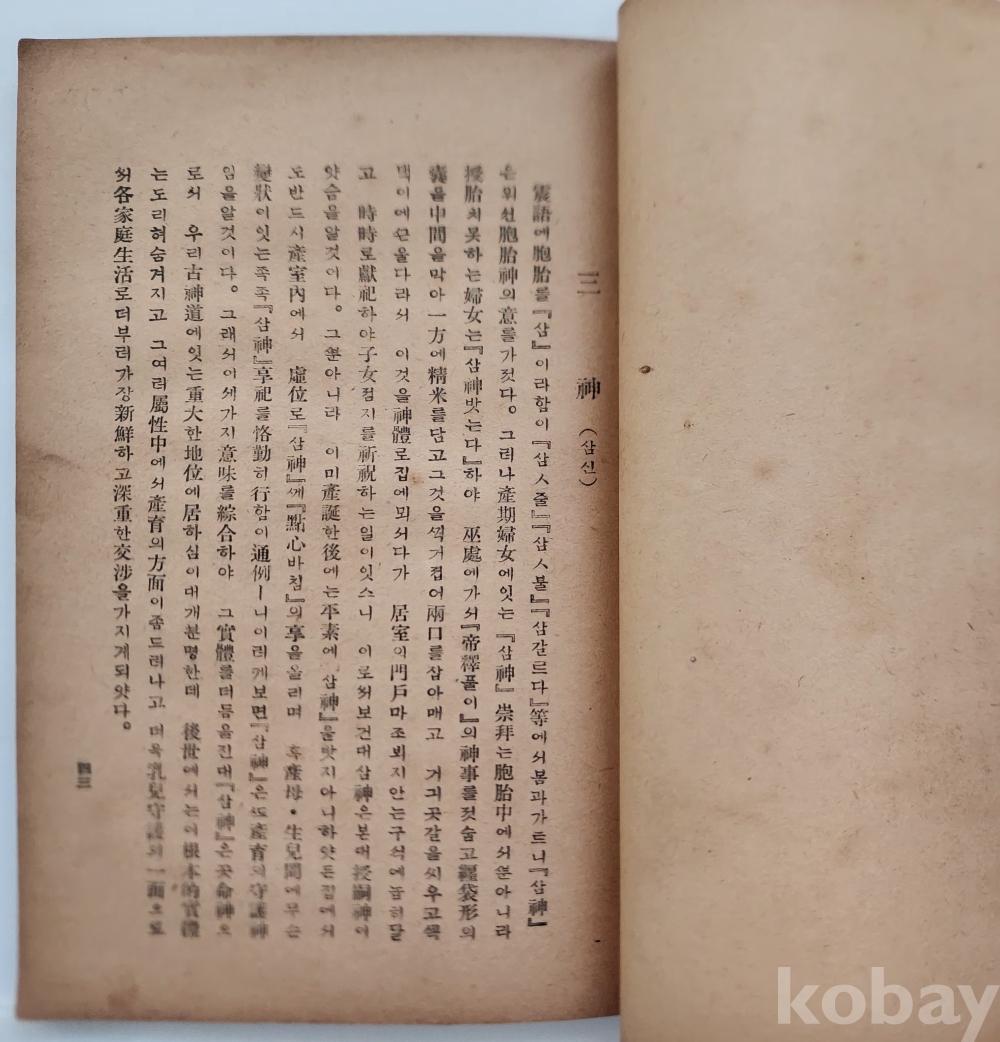 三 神 (삼신)
震語에胞胎를『삼』이라함이『삼ㅅ줄』『삼ㅅ불』『삼갈르다』等에서봄과가트니『삼神』
은위선胞胎神의意를가젓다。그러나產期婦女에잇는『삼神』崇拜는胞胎中에서뿐아니라
授胎치못하는婦女는『삼神밧는다』하야 巫處에가서『帝釋풀이』의神事를것숨고 袋形의
을中間을막아一方에精米를담고그것을꺽거접어兩口를삽아매고 거긔곳갈을씨우고
이에 울다라서 이것을神體로집에뫼서다가 居室의門戶마조뵈지안는구석에놉히달
고 時時로獻祀하야子女점지를祈祝하는일이잇스니 이로써보건대삼神은본대授嗣神이
얏슴을알것이다。그뿐아니라 이미產誕한後에는平素에『삼神』을밧지아니하얏든집에서
도반드시產室內에서 虛位로『삼神』께『點心바침』의享을올리며 혹產母・生兒間에무슨
變狀이잇는족족『삼神』享祀를恪勤히行함이通例ㅣ니이러게보면『삼神』은또產育의守護神
임을알것이다。그래서이세가지意味를綜合하야 그實體를더듬을진대『삼神』은곳命神으
로서 우리古神道에잇는重大한地位에居하심이대개분명한데 後世에서는이根本的實體
는도리혀숨겨지고 그여러屬性中에서產育의方面이좀드러나고 더욱乳兒守護의一面으로
써各家庭生活로더부러가장新鮮하고深重한交涉을가지게되얏다。
四三
kobay